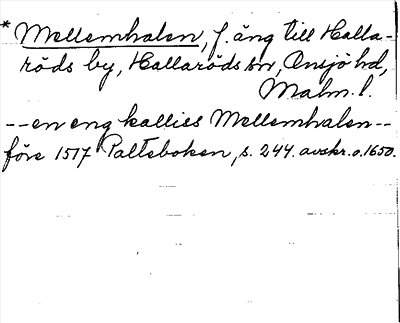 * Mellemhalen, f. äng till Halla-
röds by, Hallaröds sn, Onsjö hd,
Malm. l.
--en eng kalliss Mellemhalen--
före 1517 Palteboken, s. 244. avskr. o. 1650.